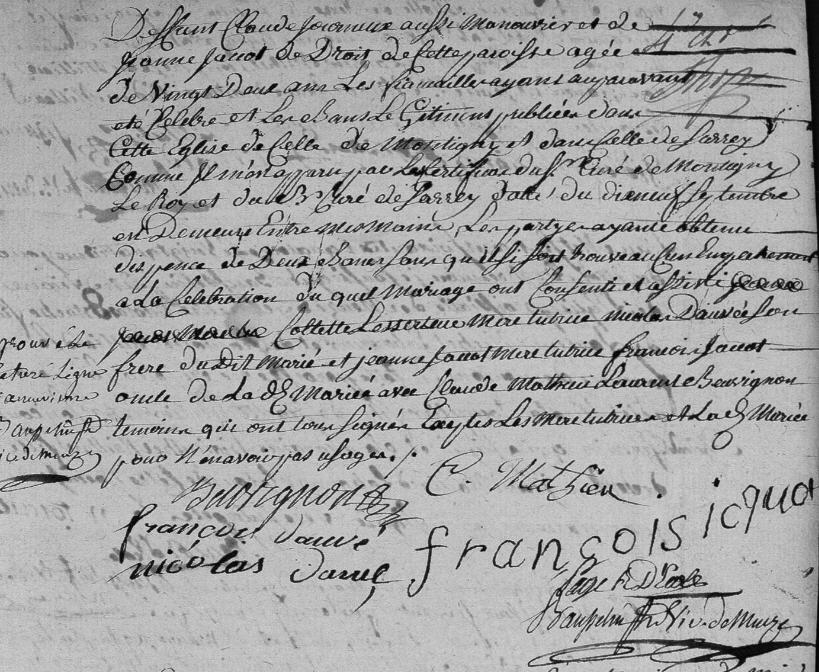 Deffunt Claude Journeux aussi Manouvrier et de
Jeanne Jacot de Droit de Cette paroisse agée
de Vingt Deux ans Les fiancailles ayant auparavant
eté Celebré et Les bans Legitimement publiées dans
Cette Eglise de Celle de Montigny et dans Celle de Sarrey
Comme Il m'est apparu par Les Certificas du Sr Curé de Montigny
Le Roy et du Sr Curé de Sarrey datté du dixneuf Septembre
en Demeuré Entre mes Mains, Les partyes ayante obtenu
dispence de Deux bans sans qu'il se soit trouvé aucun Empechement
a La Celebration du quel Mariage ont Consenti et assisté
Collette Lesserteur Mere tutrice nicolas Dauvée son
frere du Dit Marié et jeanne Jacot Mere tutrice francois Jacot
oncle de La de Mariée avec Claude Mathieu Laurent Beuvignon
temoins qui ont tous Signés Exeptes Les Mere tutrices et La de Mariée
pour N'en avoir pas usage. /.
prouvé Le
Beuvignon C. Mathieu
françois dauvé
nicolas dauvé françois icquot